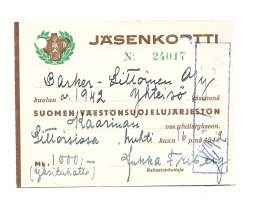 JÄSENKORTTI
N: 24017
Barker-Littoinen Oy
kuuluu v. 1942 Yhteisö jäsenenä
SUOMEN VÄESTONSUOJELUJÄRJESTÖN
Kaarinan vss. yhdistykseen.
Littoisissa, huhti kuun 16 p:nä 1942
Mk. 1000:-
Jukka Friberg
Rahastonhoitaja